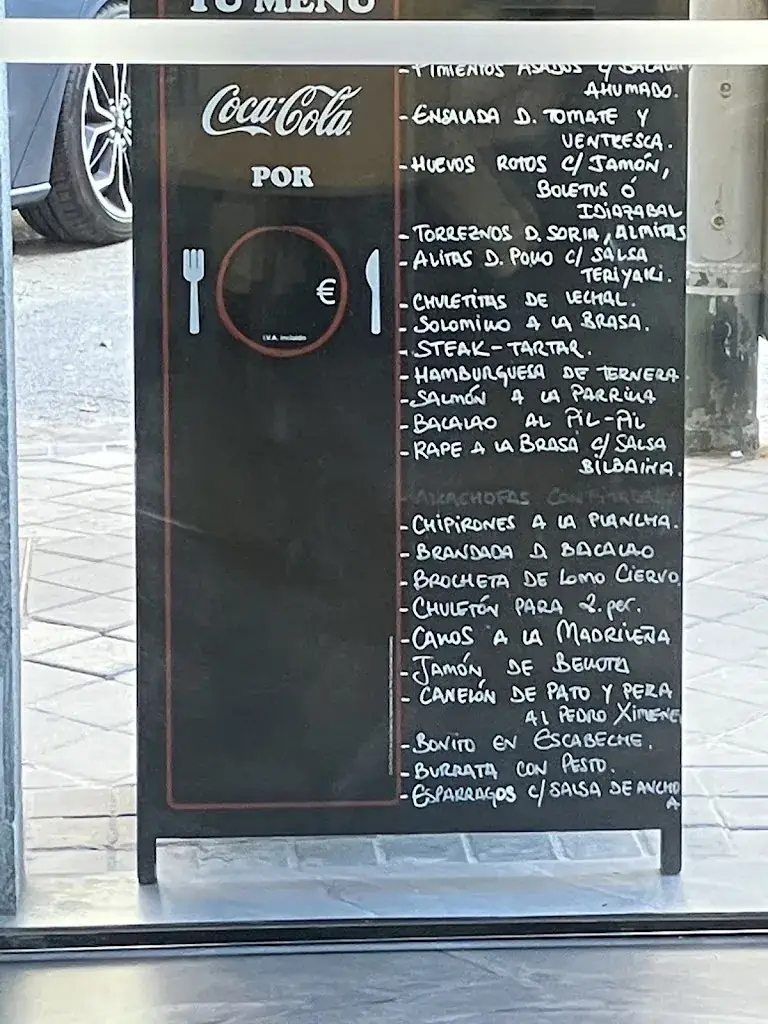 TU MENÚ
Coca-Cola
POR
€
I.V.A. incluido
-PIMIENTOS ASADOS C/ BACALAO
AHUMADO.
-ENSALADA D. TOMATE Y
VENTRESCA.
-HUEVOS ROTOS C/ JAMÓN,
BOLETUS Ó
IDIAZABAL
-TORREZNOS D. SORIA, ALMITAS
-ALITAS D. POLLO C/ SALSA
TERIYAKI.
-CHULETITAS DE LECHAL.
-SOLOMILLO A LA BRASA.
-STEAK-TARTAR.
-HAMBURGUESA DE TERNERA
-SALMÓN A LA PARRILLA
-BACALAO AL PIL-PIL
-RAPE A LA BRASA C/ SALSA
BILBAINA.
ALCACHOFAS CONFITADAS
-CHIPIRONES A LA PLANCHA.
-BRANDADA D BACALAO
-BROCHETA DE LOMO CIERVO
-CHULETÓN PARA 2. per.
-CALLOS A LA MADRILEÑA
-JAMÓN DE BELLOTA
-CANELÓN DE PATO Y PERA
AL PEDRO XIMENE
-BONITO EN ESCABECHE.
-BURRATA CON PESTO.
-ESPARRAGOS C/ SALSA DE ANCHO
A